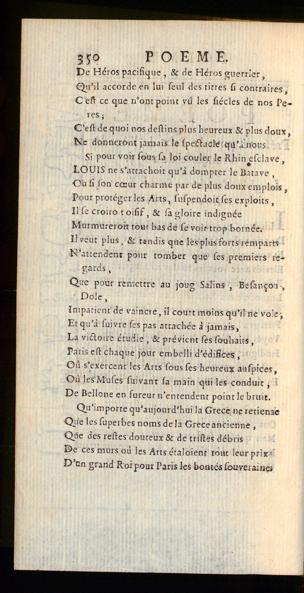 350 POEME.
De Héros pacifique, & de Héros guerrier,
Qu'il accorde en lui seul des titres si contraires,
C'est ce que n'ont point vû les siécles de nos Pe-
res;
C'est de quoi nos destins plus heureux & plus doux,
Ne donneront jamais le spectacle qu'à nous.
Si pour voir sous sa loi couler le Rhin esclave,
LOUIS ne s'attachoit qu'à dompter le Batave,
Ou si son cœur charmé par de plus doux emplois,
Pour protéger les Arts, suspendoit ses exploits,
Il se croiroit oisif, & sa gloire indignée
Murmureroit tout bas de se voir trop bornée.
Il veut plus, & tandis que les plus forts remparts
N'attendent pour tomber que ses premiers re-
gards,
Que pour remettre au joug Salins, Besançon,
Dole,
Impatient de vaincre, il court moins qu'il ne vole,
Et qu'à suivre ses pas attachée à jamais,
La victoire étudie, & prévient ses souhaits,
Paris est chaque jour embelli d'édifices,
Où s'exercent les Arts sous ses heureux auspices,
Où les Muses suivant sa main qui les conduit,
De Bellone en fureur n'entendent point le bruit.
Qu'importe qu'aujourd'hui la Grece ne retienne
Que les superbes noms de la Grece ancienne,
Que des restes douteux & de tristes débris
De ces murs où les Arts étaloient tout leur prix?
D'un grand Roi pour Paris les bontés souveraines